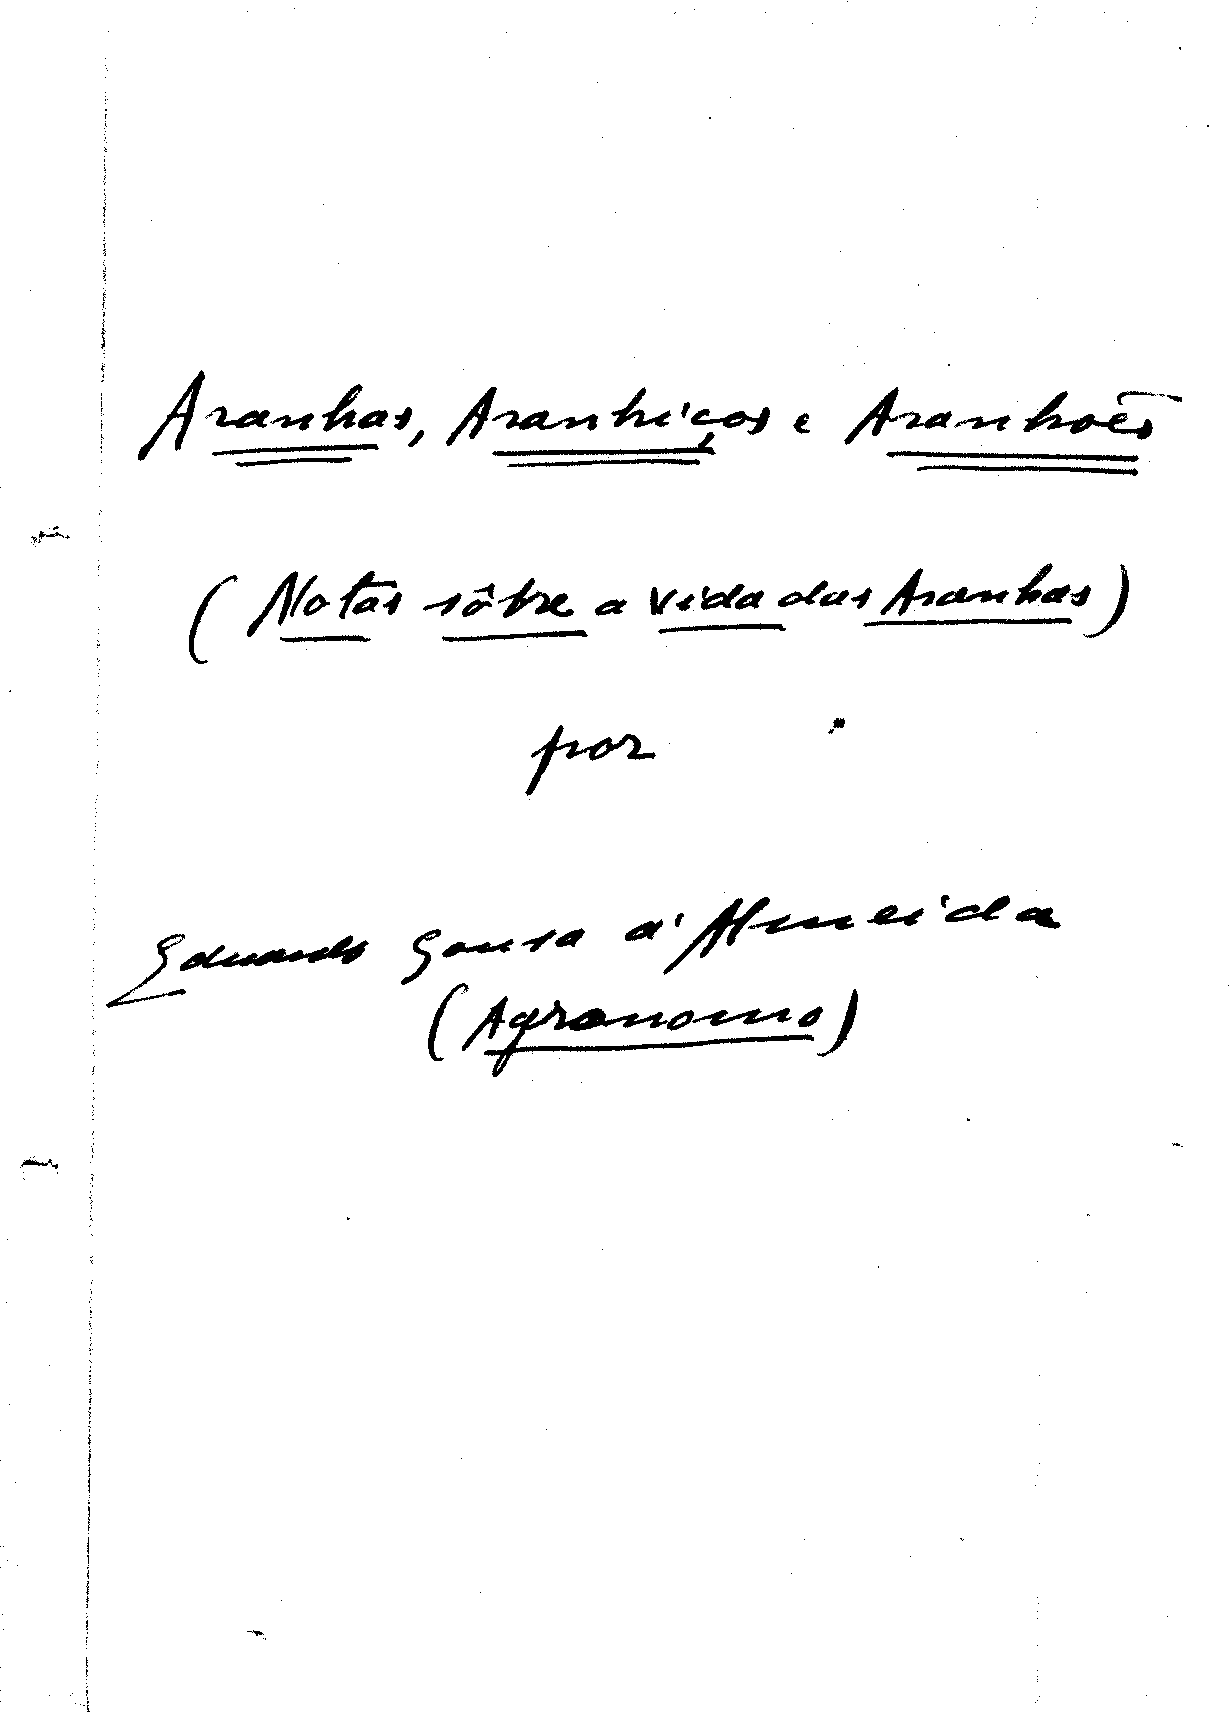 Aranhas, Aranhiços e Aranhões
(Notas sôbre a vida das Aranhas)
por
Eduardo Sousa d'Almeida
(Agronomo)